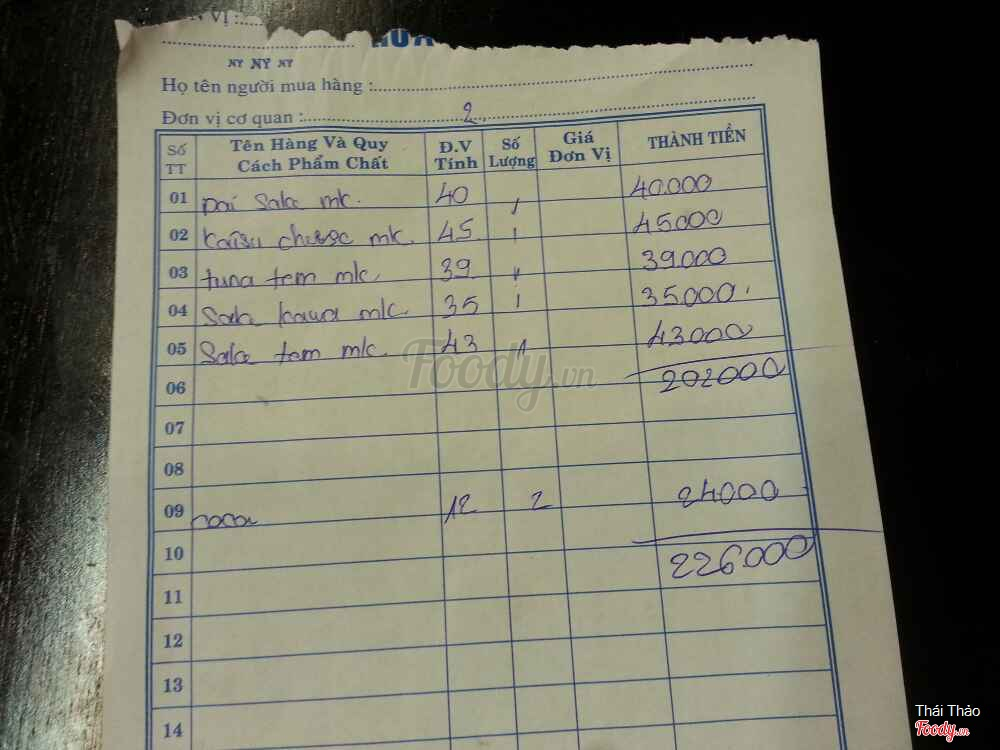 N VỊ :
HÓA
NY NY NY
Họ tên người mua hàng :
Đơn vị cơ quan : 2
Số TT Tên Hàng Và Quy Cách Phẩm Chất Đ.V Tính Số Lượng Giá Đơn Vị THÀNH TIỀN
01 pai Sake mk. 40 1 40.000
02 mk. 45 1 45000
03 tuna tem mk 39 1 39.000
04 mk. 35 1 35.000
05 Sake tem mk. 43 1 43000
06 202000
07
08
09 12 2 24000
10 226.000
11
12
13
14
Foody.vn
Thái Thảo
Foody.vn